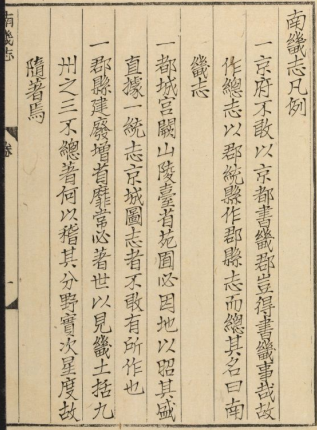 南畿志凡例
一京府不敢以京都書畿郡豈得書畿事哉故
作總志以郡統縣作郡縣志而總其名曰南
畿志
一都城宮闕山陵臺省苑囿必因地以昭其盛
直據一統志京城圖志者不敢有所作也
一郡縣建廢增省靡常必著世以見畿土括九
州之三不總著何以稽其分野實次星度故
隨著焉
南畿志